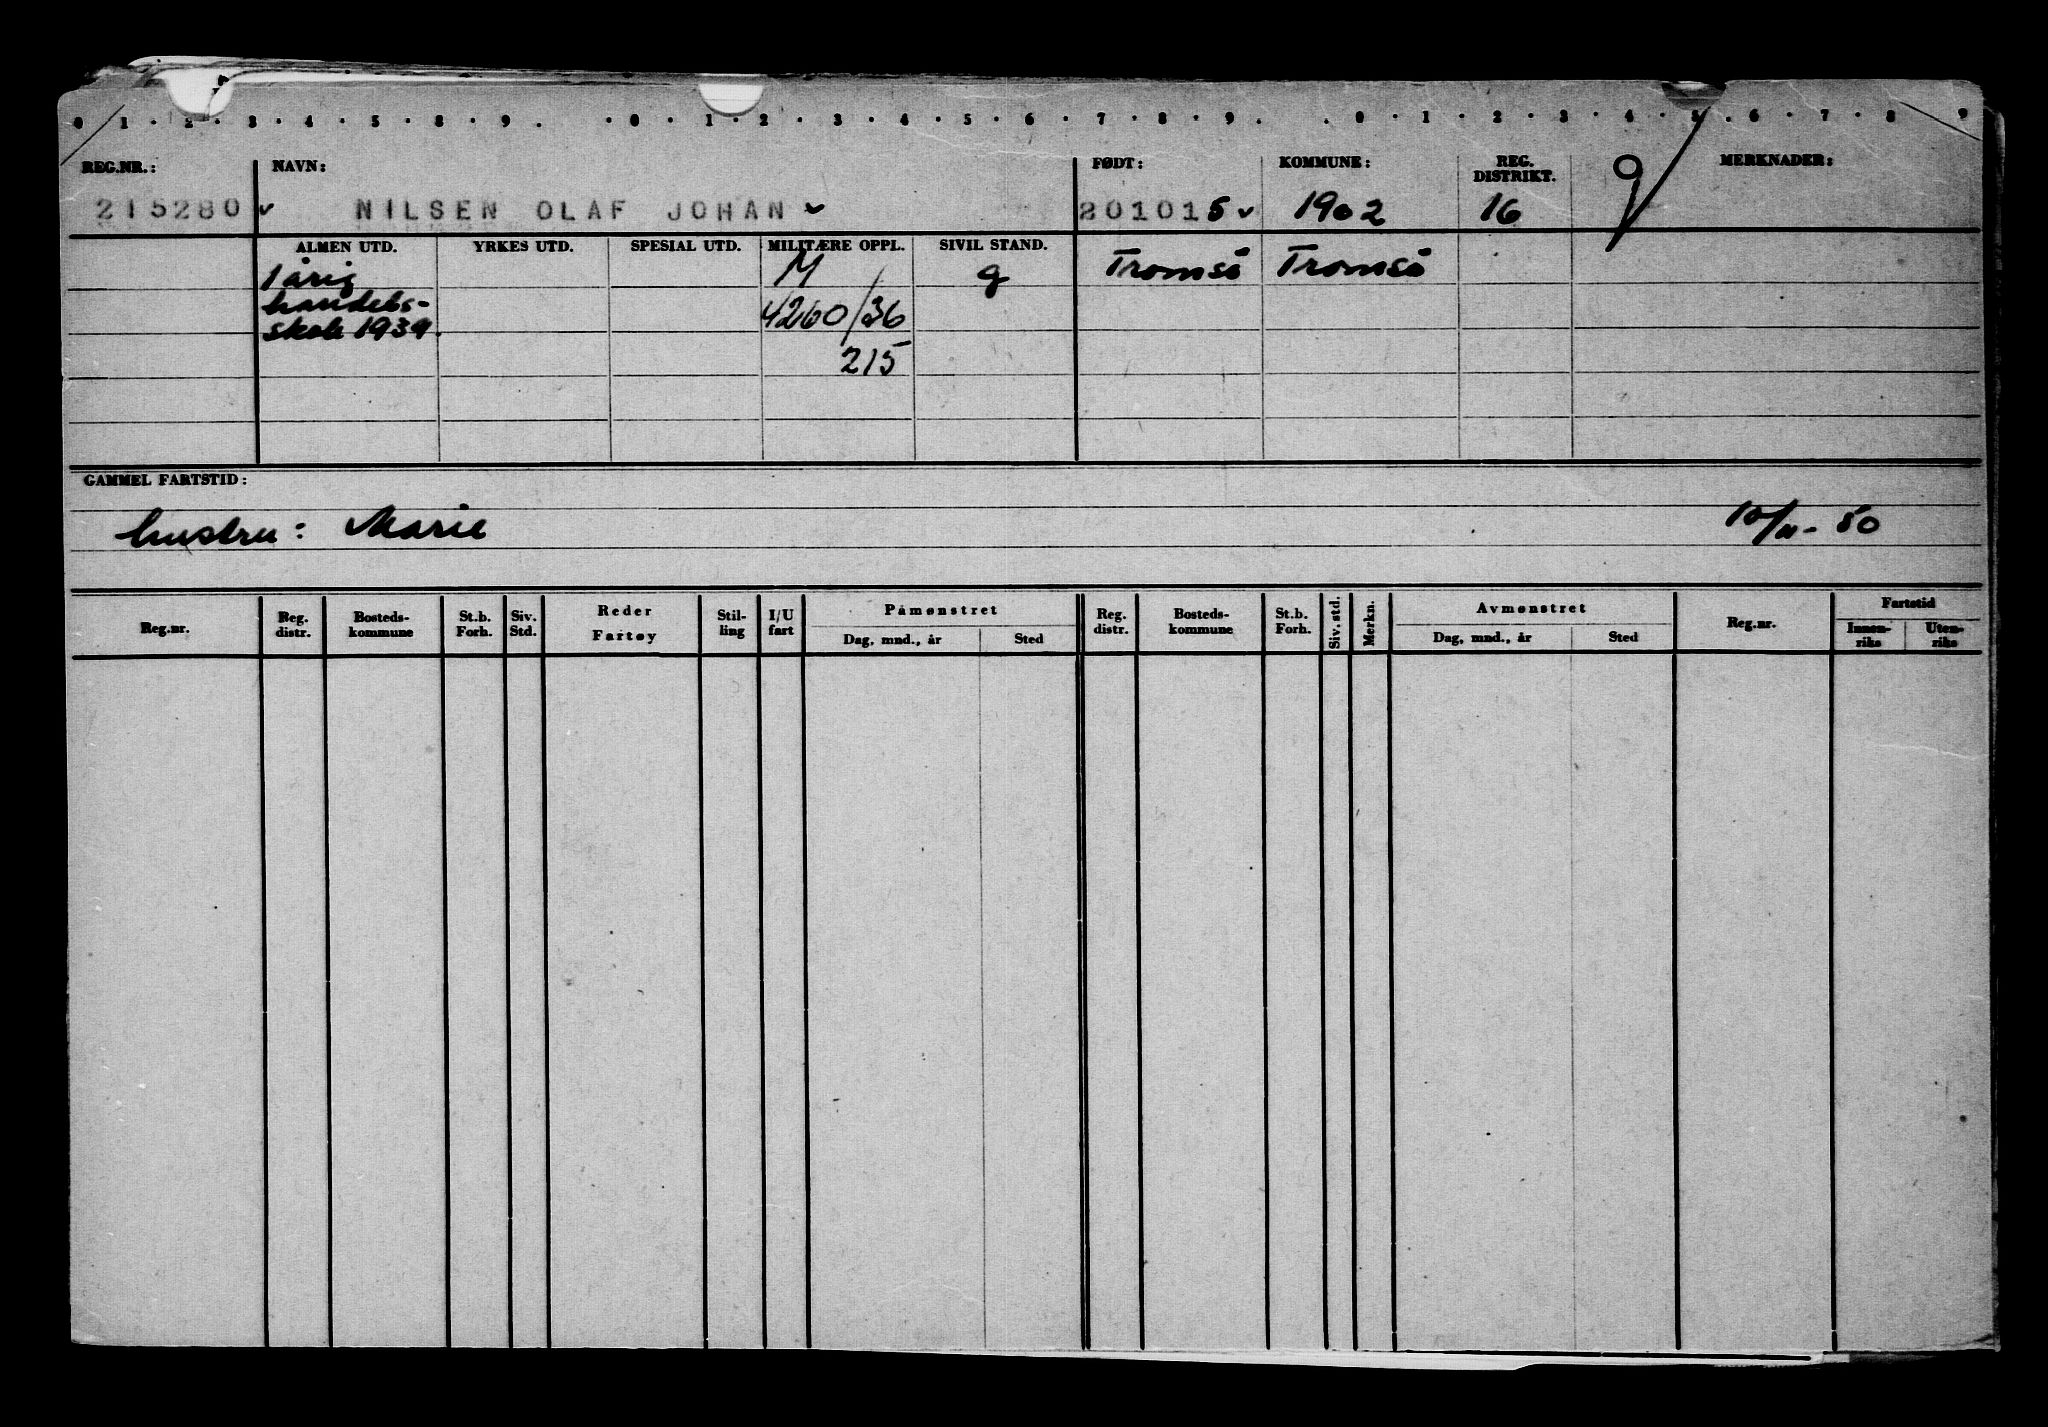 0 1 . 2 . 3 . 4 . 5 . 8 . 9 . . 0 . 1 . 2 . 3 . 4 . 5 . 6 . 7 . 8 . 9 . . 0 . 1 . 2 . 3 . 4 . 5 . 6 . 7 . 8 9
REG.NR.: NAVN: FØDT: KOMMUNE: REG. DISTRIKT. MERKNADER:
215280 NILSEN OLAF JOHAN 201015 1902 16 g
ALMEN UTD. YRKES UTD. SPESIAL UTD. MILITÆRE OPPL. SIVIL STAND.
1 årig M g Tromsö Tromsö
handels-
skole 1939. 4260/36
215
GAMMEL FARTSTID:
hustru: Marie 10/11-50
Reg.nr. Reg. distr. Bosteds-kommune St.b. Forh. Siv. Std. Reder Fartøy Stil-ling I/U fart Påmønstret Reg. distr. Bosteds-kommune St.b. Forh. Siv. std. Merkn. Avmønstret Reg.nr. Fartstid
Dag, mnd., år Sted Dag, mnd., år Sted Innen-riks Uten-riks